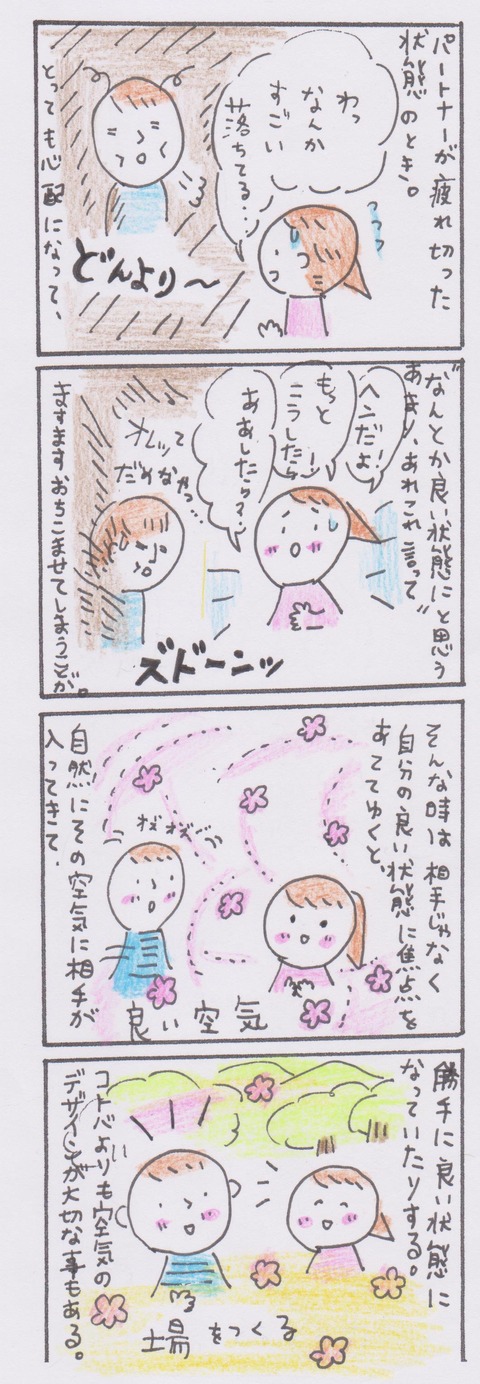 パートナーが疲れ切った
状態のとき。
わっ
なんか
すごい
落ちてる・・
どんより〜
とっても心配になって、
"なんとか良い状態に"と思う
あまり、あれこれ言って
ヘンだよ!
もっと
こうしたら!
ああしたら?
オレって
だめなやつ・・
ズドーンッ
ますますおちこませてしまうことが。
そんな時は相手じゃなく
自分の良い状態に焦点を
あててゆくと、
良い空気
自然にその空気に相手が
入ってきて、
勝手に良い状態に
なっていたりする。
場をつくる
コトバよりも空気の
デザインが大切な事もある。